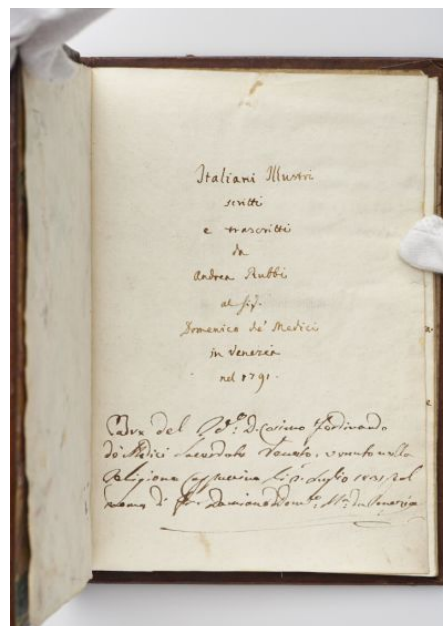 Italiani Illustri
scritti
e trascritti
da
Andrea Rubbi
al Sig.
Domenico de' Medici
in Venezia
nel 1791.
del D. Cosimo Ferdinando
de' Medici Sacerdote Veneto, venuto nella
Religione Luglio 1831 col
nome di Fr. Damiano Venezia